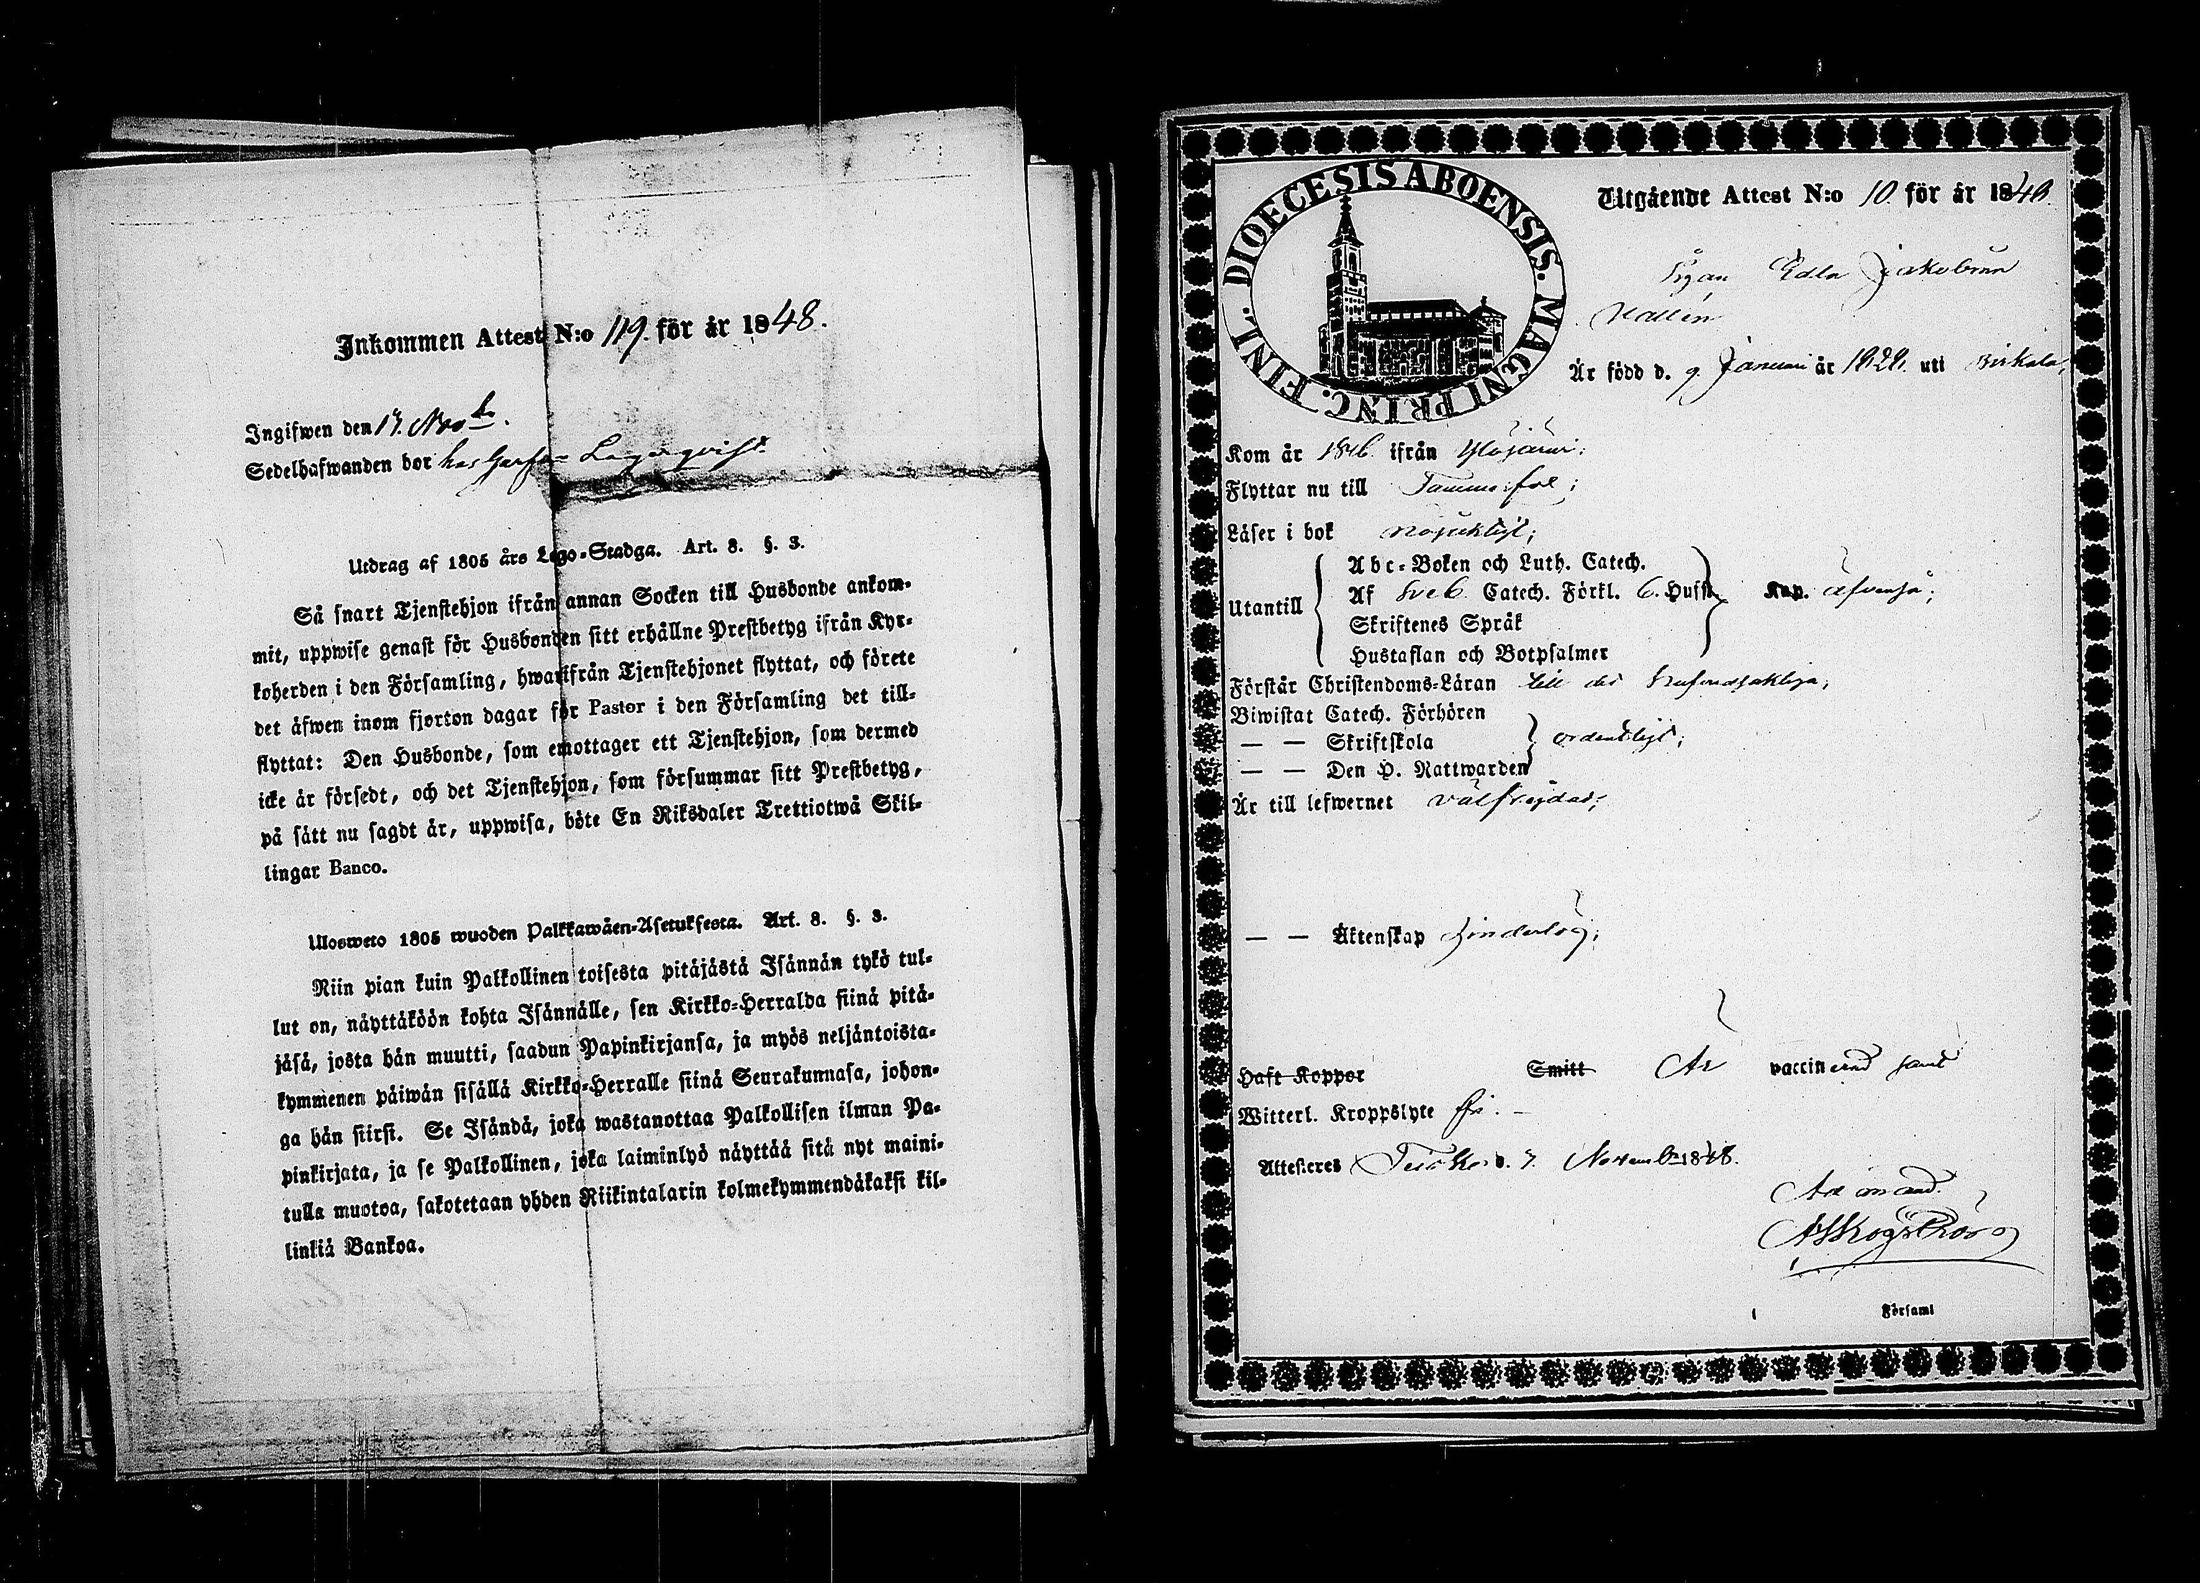 Inkommen Attest N:o 119. för år 1848.
Ingifwen den 17. Novbr.
Sedelhafwanden bor hos Garfv. Lagerqvist.
Utdrag af 1805 års Lego-Stadga. Art. 8. §. 3.
Så snart Tjenstehjon ifrån annan Socken till Husbonde ankom-
mit, uppwise genast för Husbonden sitt erhållne Prestbetyg ifrån Kyr-
koherden i den Församling, hwarifrån Tjenstehjonet flyttat, och förete
det äfwen inom fjorton dagar för Pastor i den Församling det till-
flyttat: Den Husbonde, som emottager ett Tjenstehjon, som dermed
icke är försedt, och det Tjenstehjon, som försummar sitt Prestbetyg,
på sätt nu sagdt är, uppwisa, böte En Riksdaler Trettiotwå Skil-
lingar Banco.
Ulosweto 1805 wuoden Palkkawäen-Asetuksesta. Art. 8. §. 3.
Niin pian kuin Palkollinen toisesta pitäjästä Isännän tykö tul-
lut on, näyttäköön kohta Isännälle, sen Kirkko-Herralda siinä pitä-
jäsä, josta hän muutti, saadun Papinkirjansa, ja myös neljäntoista-
kymmenen päiwän sisällä Kirkko-Herralle siinä Seurakunnasa, johon-
ga hän siirsi. Se Isändä, joka wastanottaa Palkollisen ilman Pa-
pinkirjata, ja se Palkollinen, joka laiminlyö näyttää sitä nyt maini-
tulla muotoa, sakotetaan yhden Riikintalarin kolmekymmendäkaksi kil-
linkiä Bankoa.
DIOECESIS ABOENSIS. MAGNI PRINC. FINL.
Utgående Attest N:o 10 för år 1848.
Pigan Edla Jakobina
Wallén
Är född d. 9. Januari år 1828. uti Birkala;
Kom år 1846. ifrån Ylöjärvi;
Flyttar nu till Tammerfors;
Läser i bok nöjaktigt;
Utantill
Abc-Boken och Luth. Catech.
Af Sveb. Catech. Förkl. 6. Hufst. Kap. äfvenså;
Skriftenes Språk
Hustaflan och Botpsalmer
Förstår Christendoms-Läran till det hufvudsakliga;
Biwistat Catech. Förhören
— — Skriftskola ordentligt;
— — Den H. Nattwarden
Är till lefwernet välfrejdad;
— — Äktenskap hinderlös;
Haft Koppor Smitt Är vaccinerad samt
Witterl. Kroppslyte fri. –
Attesteres d. 7. November 1848.
Församl